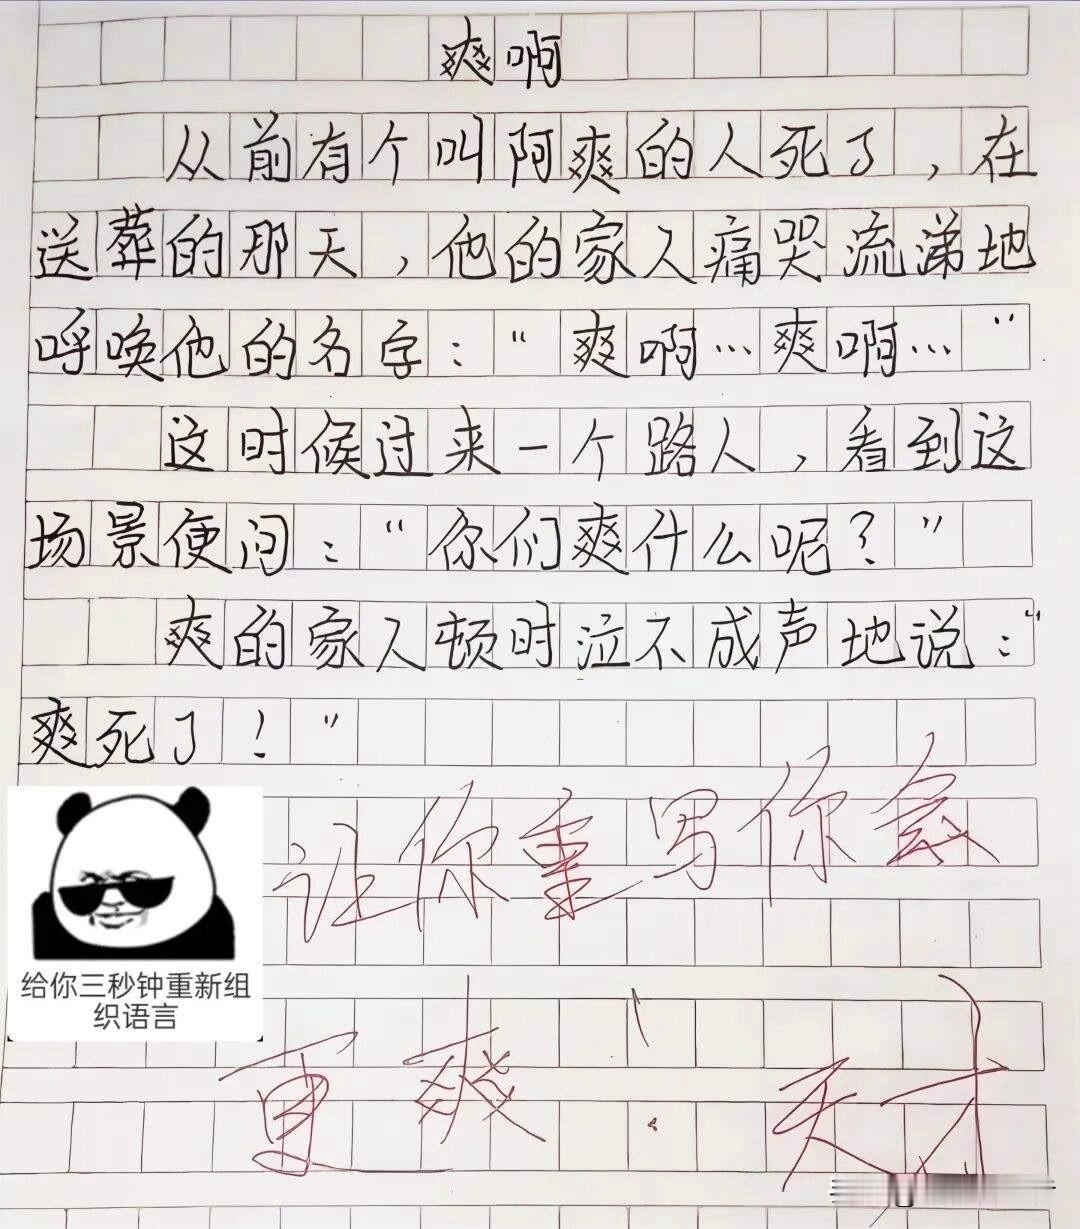 爽啊
从前有个叫阿爽的人死了，在
送葬的那天，他的家人痛哭流涕地
呼唤他的名字：“爽啊…爽啊…”
这时候过来一个路人，看到这
场景便问：“你们爽什么呢？”
爽的家人顿时泣不成声地说：“
爽死了！”
让你重写你会
更爽！天才
给你三秒钟重新组
织语言